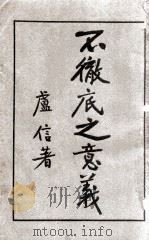 不徹底之意義
盧信著
www.mtoou.info